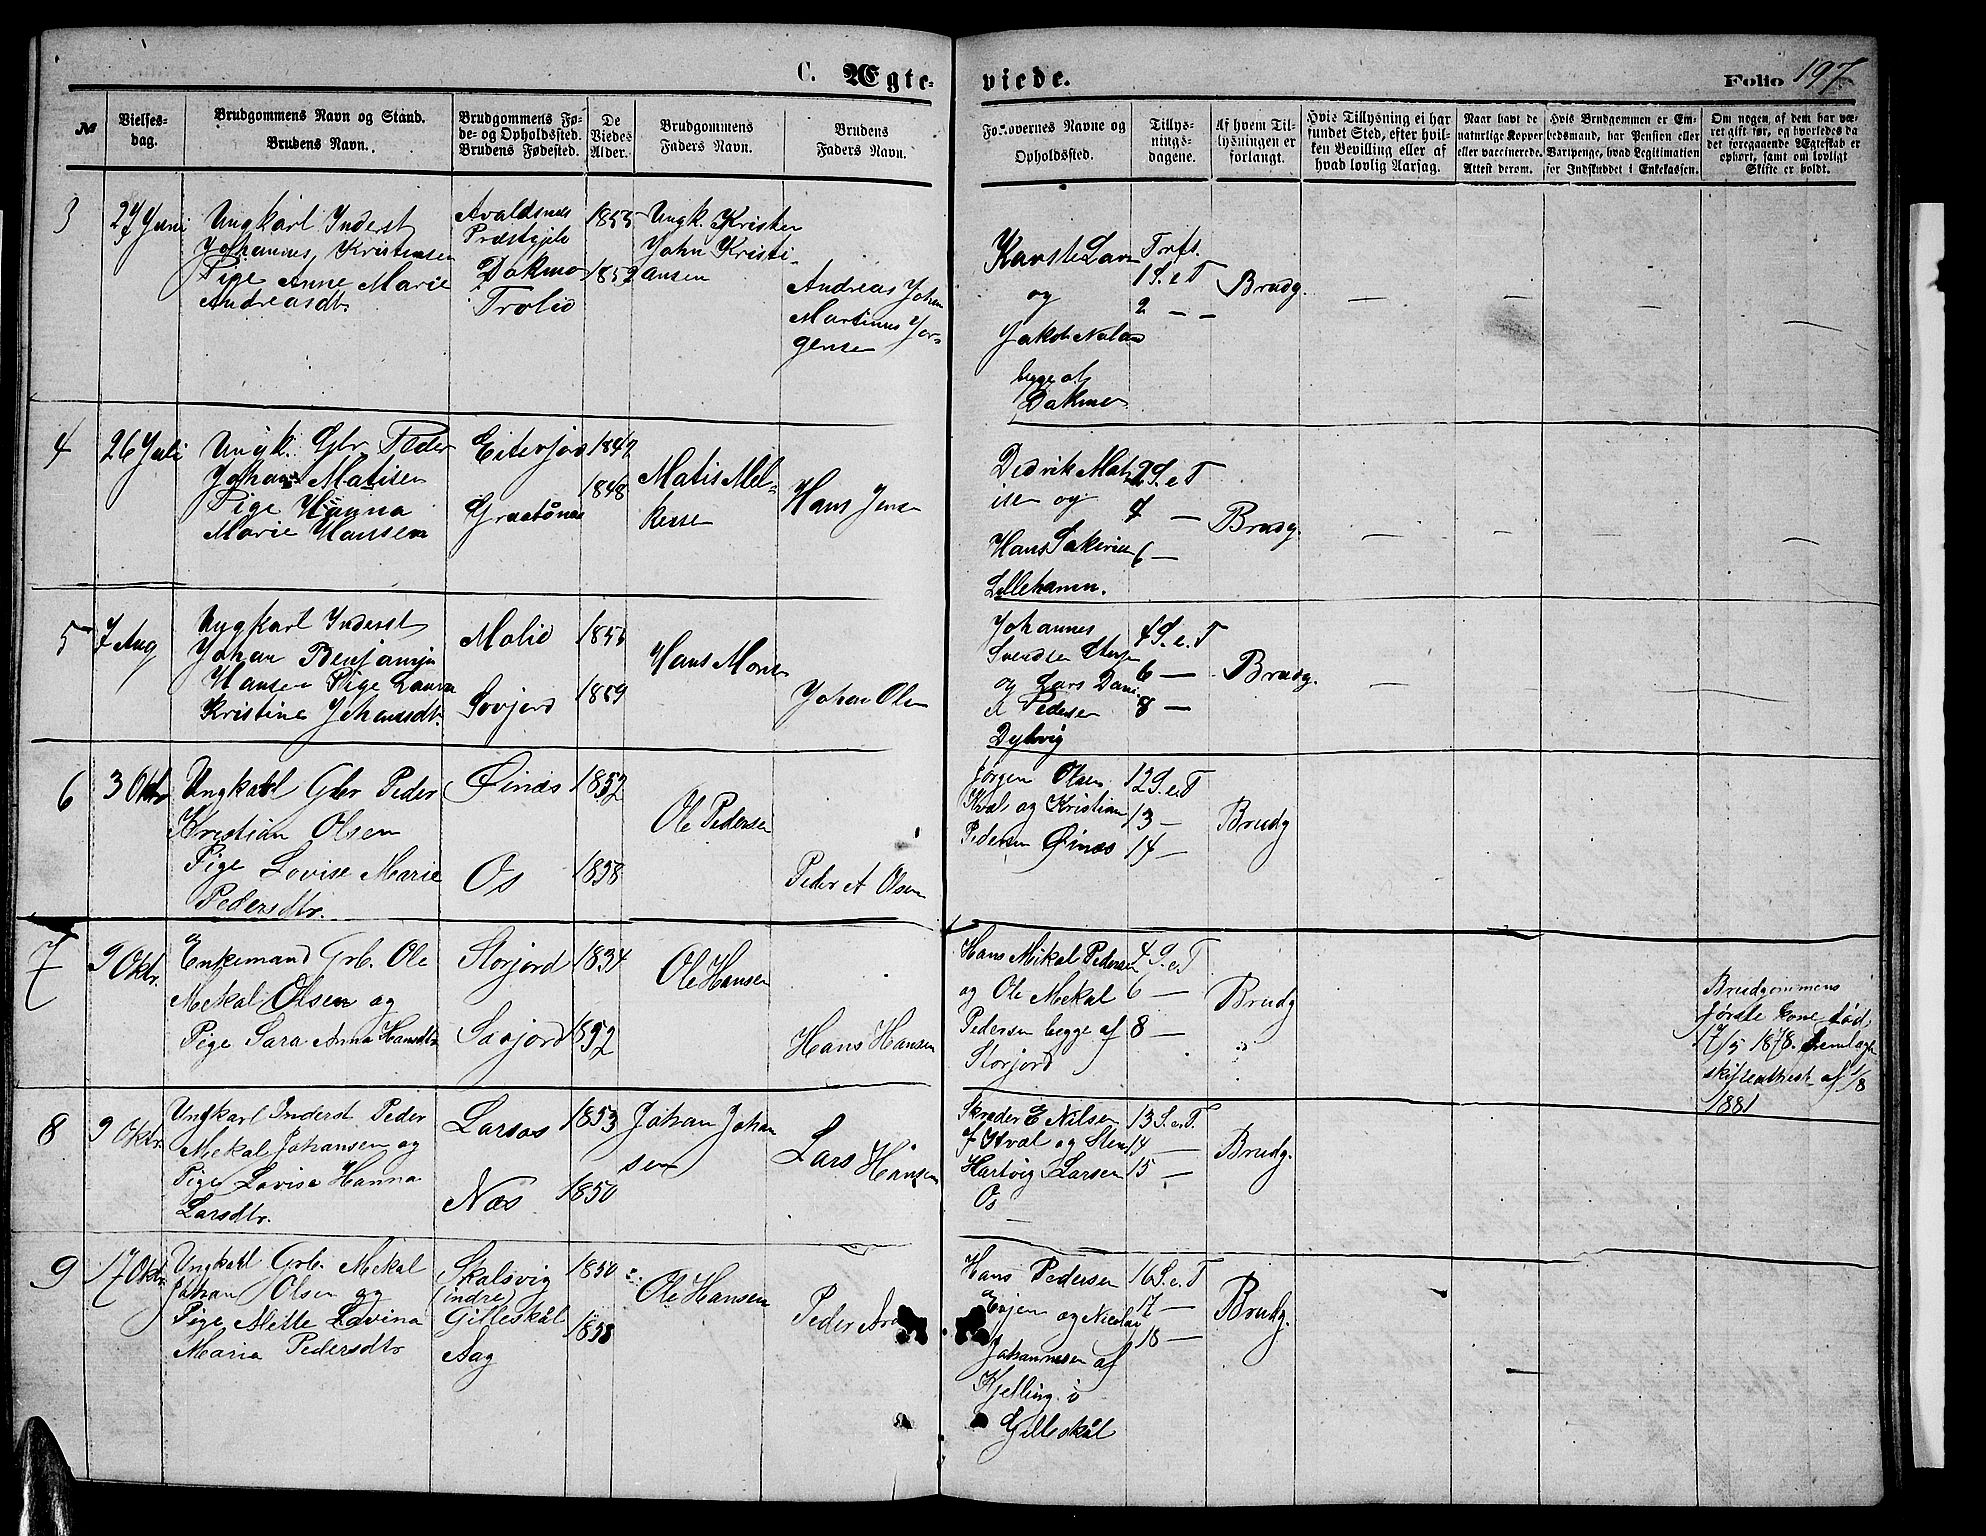 C. Ægte-
viede.
Folio 197.
№
Vielses-
dag.
Brudgommens Navn og Stand.
Brudens Navn.
Brudgommens Fø-
de- og Opholdssted.
Brudens Fødested.
De
Viedes
Alder.
Brudgommens
Faders Navn.
Brudens
Faders Navn.
Forlovernes Navne og
Opholdssted.
Tillys-
nings-
dagene.
Af hvem Til-
lysningen er
forlangt.
Hvis Tillysning ei har
fundet Sted, efter hvil-
ken Bevilling eller af
hvad lovlig Aarsag.
Naar havt de
naturlige Kopper
eller vaccinerede.
Attest derom.
Hvis Brudgommen er Em-
bedsmand, har Pension eller
Vartpenge, hvad Legitimation
for Indskuddet i Enkekassen.
Om nogen af dem har væ-
ret gift før, og hvorledes da
det foregaaende Ægteskab er
ophørt, samt om lovligt
Skifte er holdt.
3
27 Juni
Ungkarl Inderst
Johannes Kristensen
Pige Anne Marie
Andreasdtr.
Avaldsnes
Præstgjeld
1853
1852
Ungk. Kristen
John Kristi-
ansen
Andreas Johan
Martinus Jør-
gensen
og
Jakob
begge af
1 S. e. T
2 - -
Brudg.
4
26 Juli
Ungk. Gbr. Peder
Johan Matisen
Pige Hanna
Marie Hansen
Eiterjord
1847
1848
Matis Mel-
Hans Jensen
Didrik Mat-
isen og
Hans
2 S. e. T
4 —
6 —
Brudg.
5
7 Aug
Ungkarl Inderst
Johan Benjamin
Hansen Pige Laura
Kristine Johansdtr.
1859
Hans
Johan Olsen
Johannes
Svendsen
og Lars Dani-
el Pedersen
4 S. e. T
6 —
8 —
Brudg.
6
3 Oktr
Ungkarl Gbr Peder
Kristian Olsen
Pige Lovise Marie
Pedersdtr.
Øinæs
Os
1852
1858
Ole Pedersen
Peder A Olsen
Jørgen Olsen
Kval og Kristian
Pedersen Øinæs
12 S. e. T
13 —
14 —
Brudg
7
9 Oktr.
Enkemand Grb. Ole
Mekal Olsen og
Pige Sara Anna Hansdtr
Storjord
Savjord
1834
1852
Ole Hansen
Hans Hansen
Hans Mikal Pedersen
og Ole Mekal
Pedersen begge af
Storjord
4 S. e. T
6 —
8 —
Brudg
Brudgommens
første kone død
17/5 1878. Fremlagt
skifteattest af 1/8
1881
8
9 Oktr.
Ungkarl Inderst Peder
Mekal Johansen og
Pige Lovise Hanna
Larsdtr.
Larsos
Næs
1853
1850
Johan Johan
sen
Lars Hansen
Skræder E Nilsen
Hartvig Larsen
Os
13 S. e. T.
14 —
15 —
Brudg.
9
17 Oktr
Ungkarl Grb. Mekal
Johan Olsen og
Pige Mette Lovina
Maria Pedersdtr
Skalsvig
(indre)
Gilleskål
Aag
1850
1858
Ole Hansen
Peder
Hans Pedersen
Evjen og Nicolai
Johannesen af
Kjelling i
Gilleskål
16 S. e. T
17 —
18 —
Brudg.